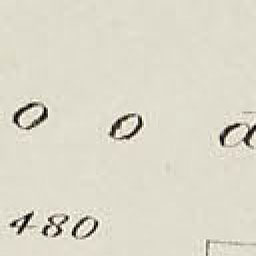 o o a
480